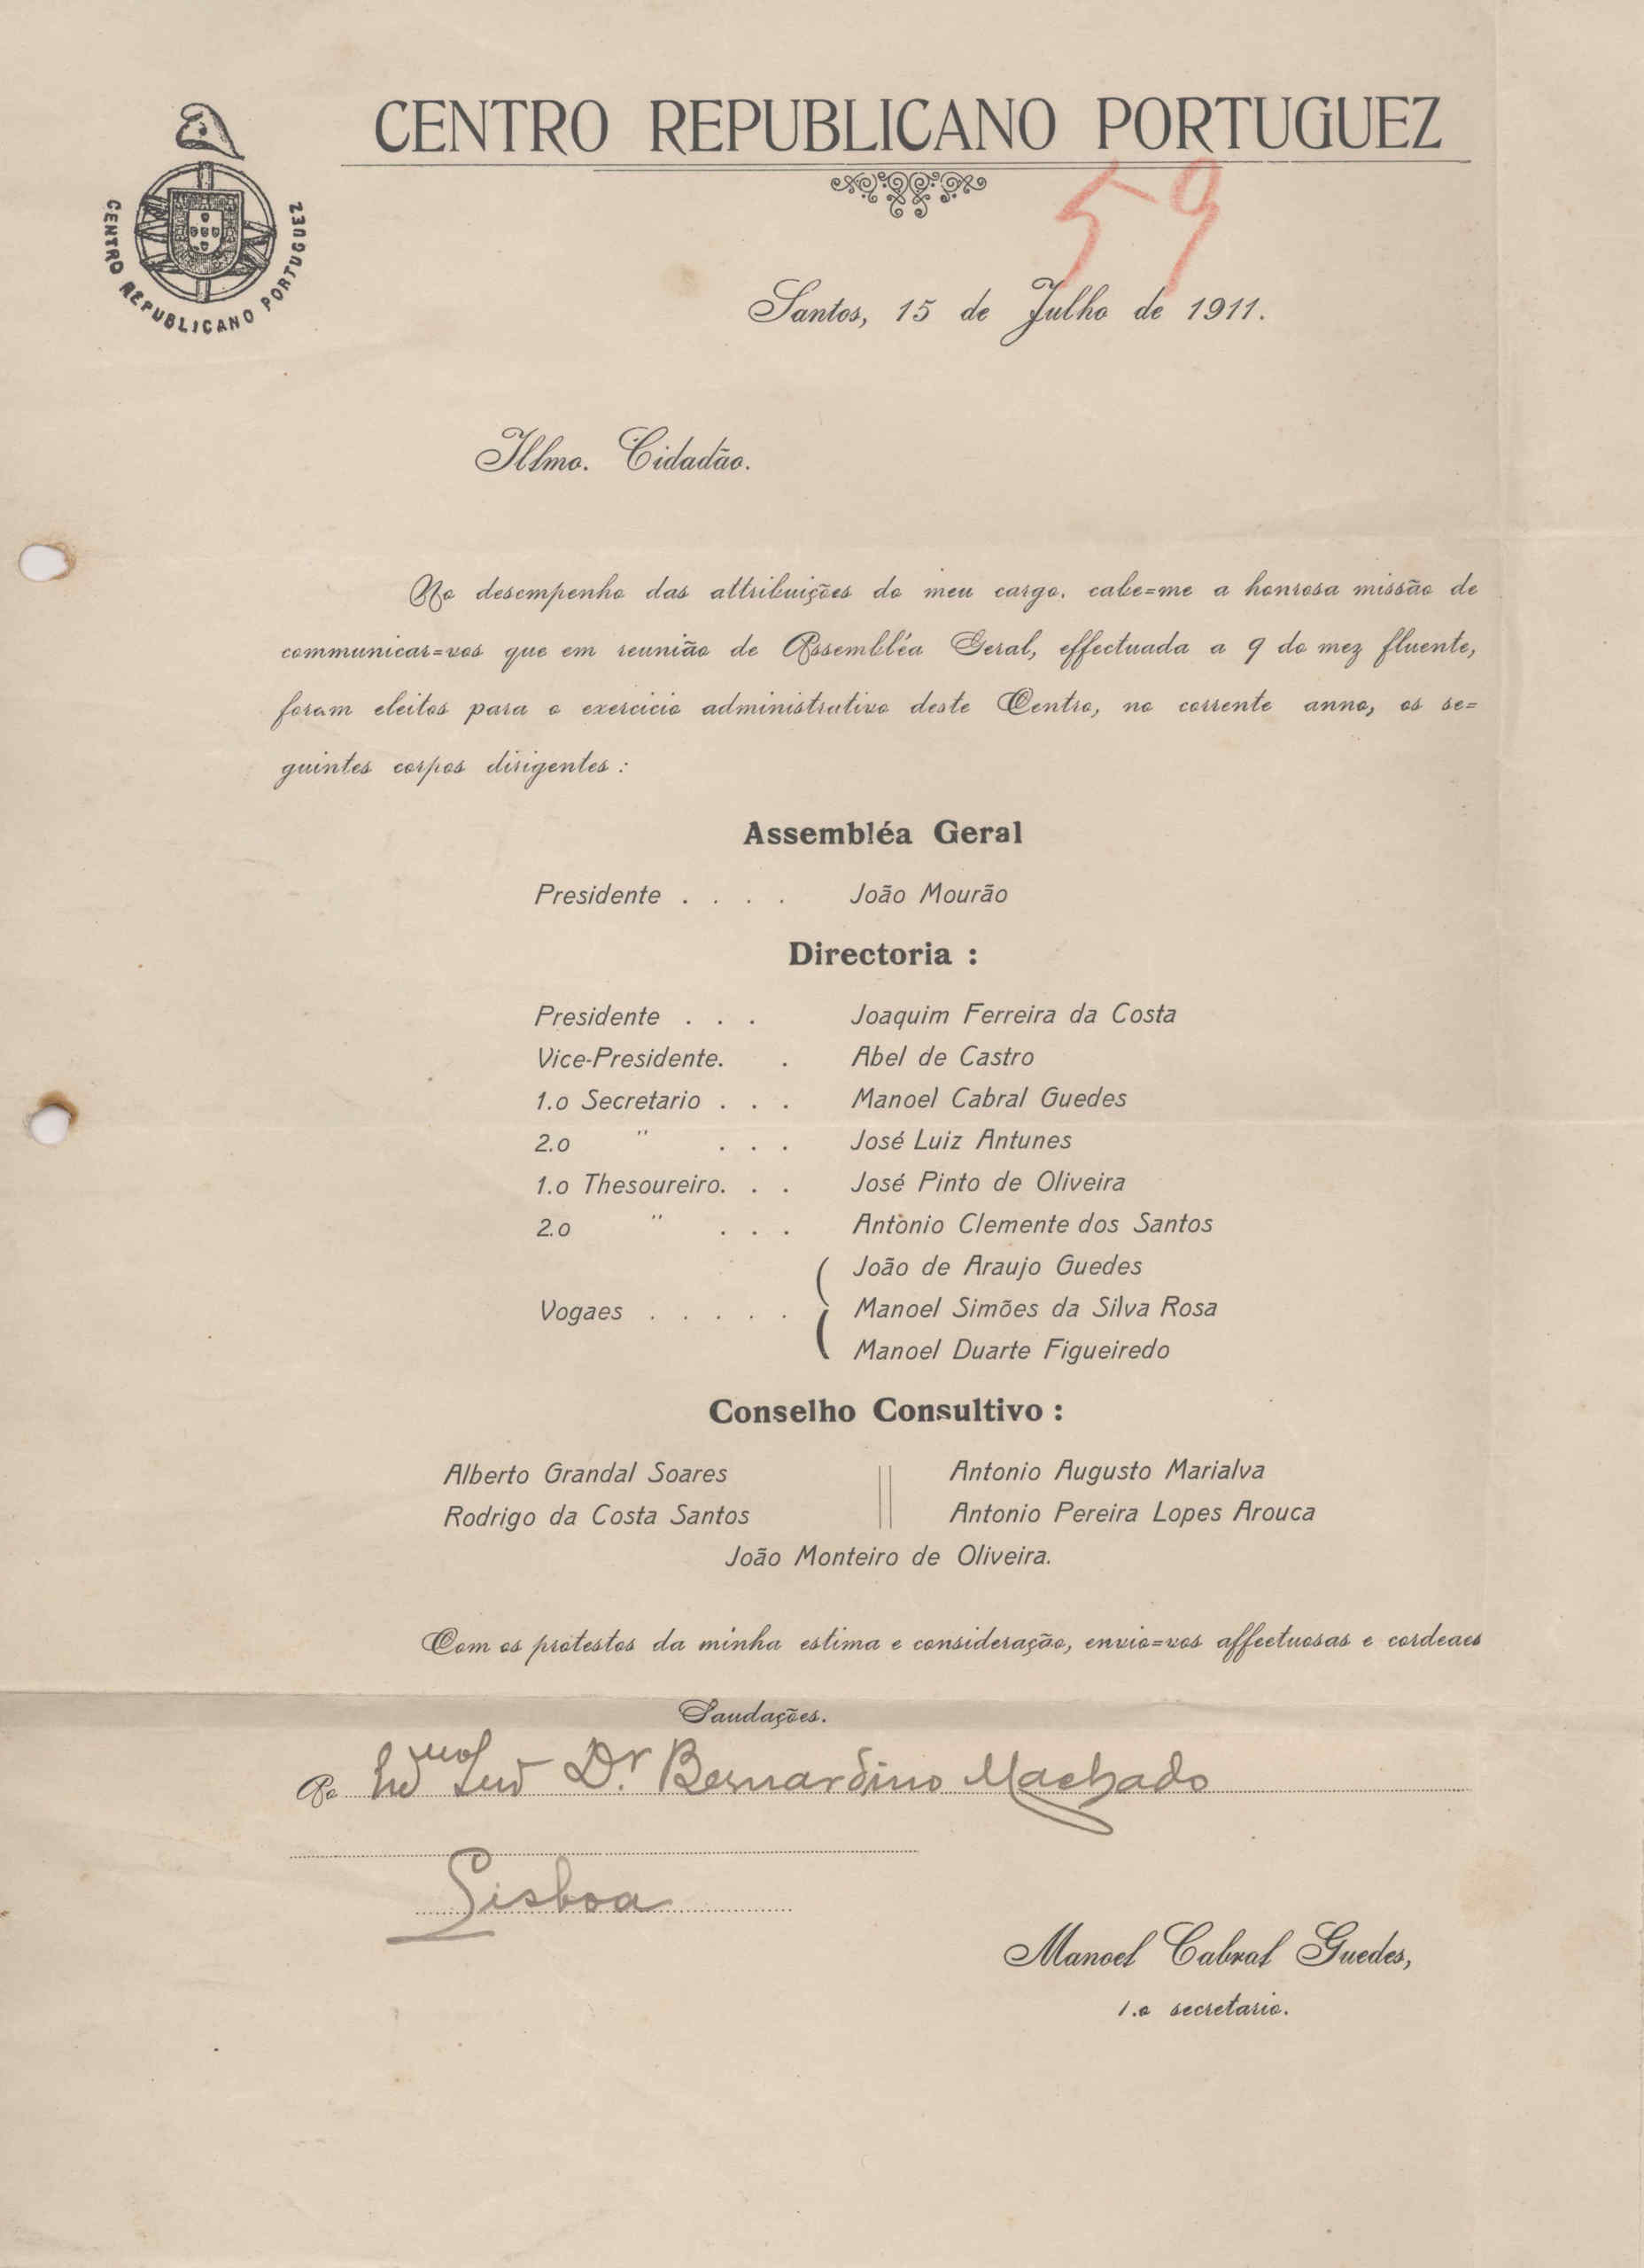 CENTRO REPUBLICANO PORTUGUEZ
CENTRO REPUBLICANO PORTUGUEZ
59
Santos, 15 de Julho de 1911.
Illmo. Cidadão.
No desempenho das attribuições do meu cargo, cabe=me a honrosa missão de
communicar=vos que em reunião de Assembléa Geral, effectuada a 9 do mez fluente,
foram eleitos para o exercicio administrativo deste Centro, no corrente anno, os se=
guintes corpos dirigentes :
Assembléa Geral
Presidente . . . . João Mourão
Directoria :
Presidente . . . Joaquim Ferreira da Costa
Vice-Presidente. . Abel de Castro
1.o Secretario . . . Manoel Cabral Guedes
2.o " . . . José Luiz Antunes
1.o Thesoureiro. . . José Pinto de Oliveira
2.o " . . . Antonio Clemente dos Santos
João de Araujo Guedes
Vogaes . . . . . Manoel Simões da Silva Rosa
Manoel Duarte Figueiredo
Conselho Consultivo :
Alberto Grandal Soares || Antonio Augusto Marialva
Rodrigo da Costa Santos || Antonio Pereira Lopes Arouca
João Monteiro de Oliveira.
Com os protestos da minha estima e consideração, envio=vos affectuosas e cordeaes
Saudações.
Ao Dr. Bernardino Machado
Lisboa
Manoel Cabral Guedes,
1.o secretario.